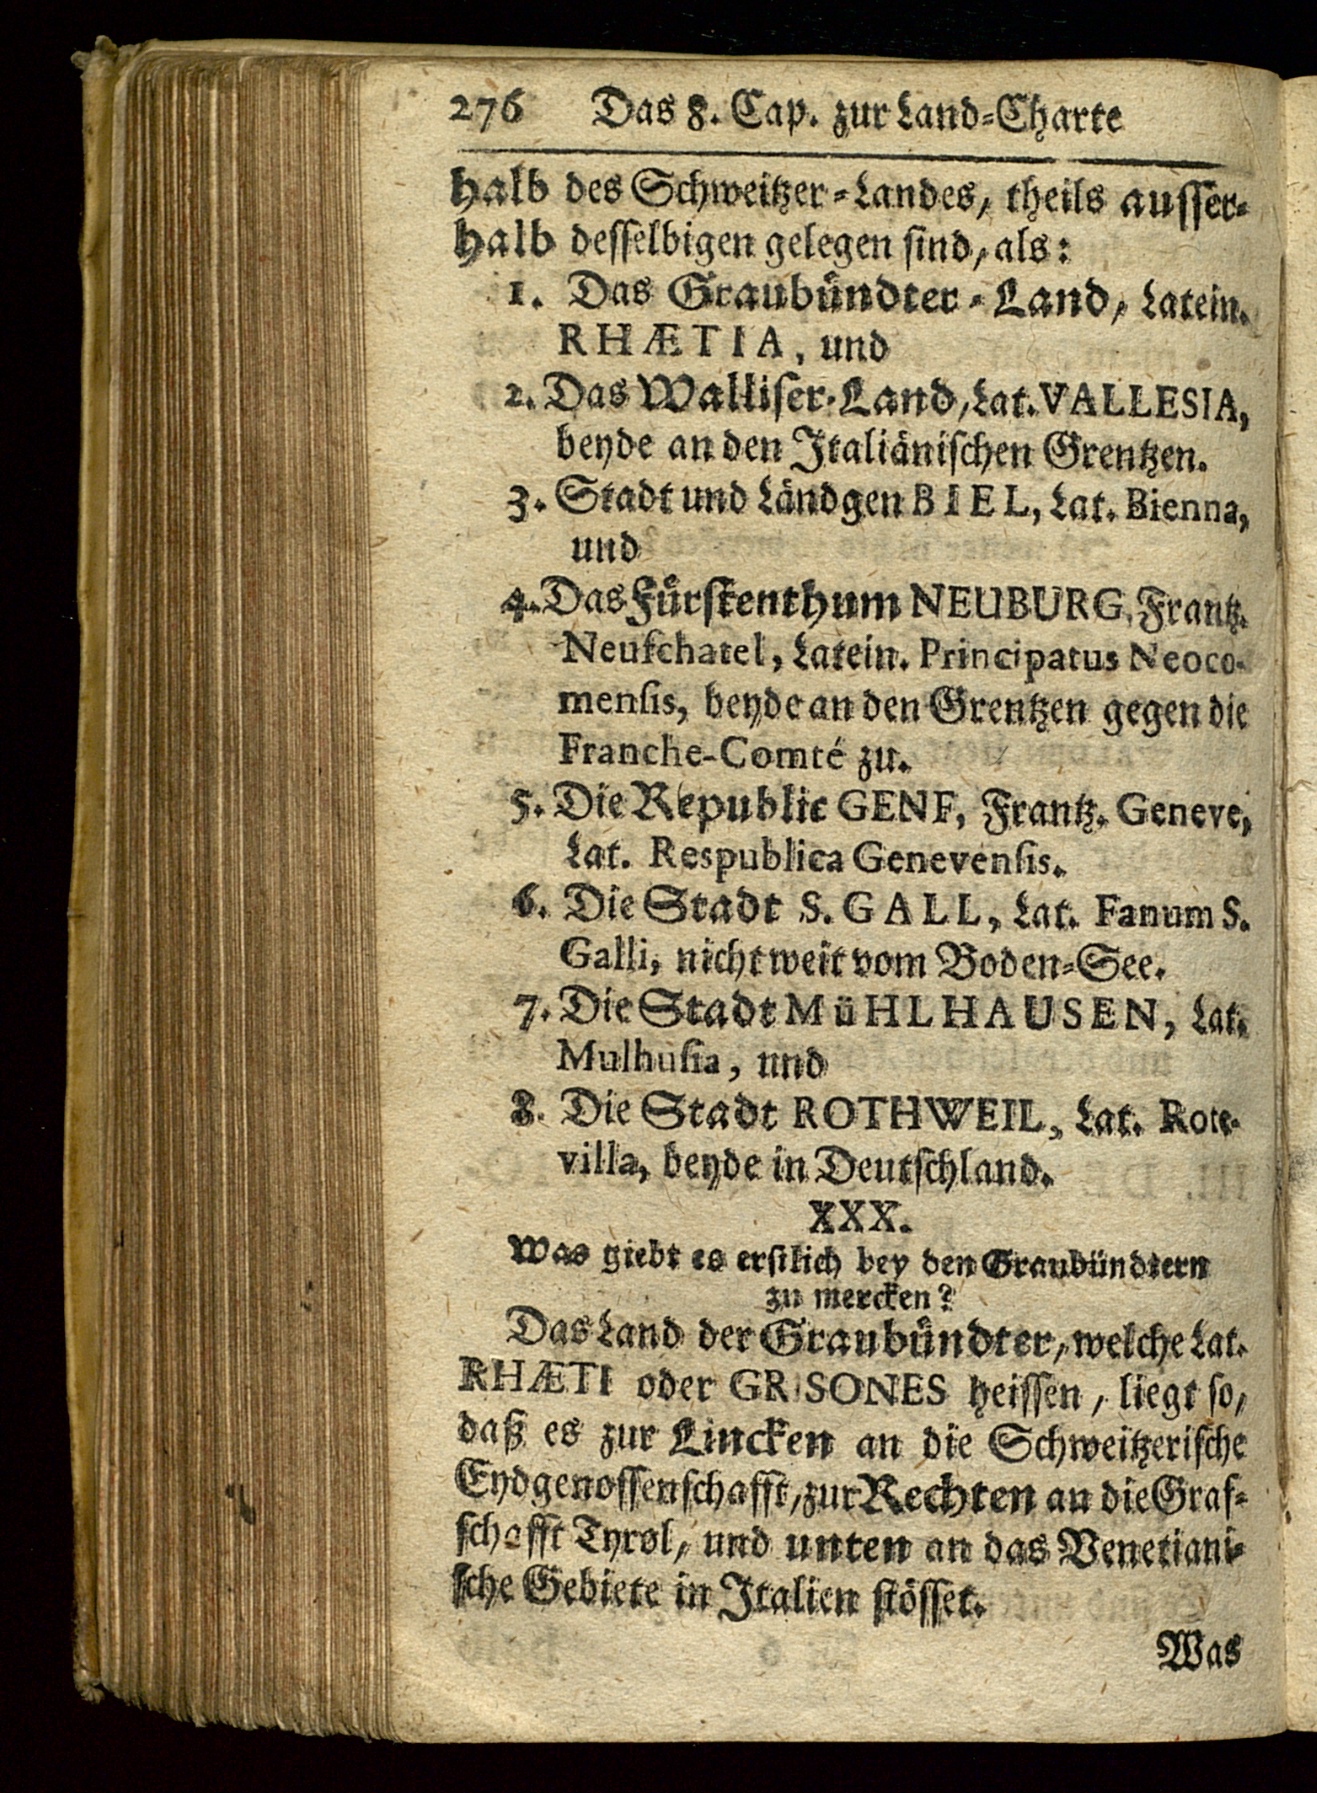 276 Das 8. Cap. zur Land-Charte
halb des Schweitzer-Landes, theils ausser-
halb desselbigen gelegen sind, als:
1. Das Graubündter-Land, Latein.
RHÆTIA, und
2. Das Walliser-Land, Lat. VALLESIA,
beyde an den Italiänischen Grentzen.
3. Stadt und Ländgen BIEL, Lat. Bienna,
und
4. Das Fürstenthum NEUBURG, Frantz.
Neufchatel, Latein. Principatus Neoco-
mensis, beyde an den Grentzen gegen die
Franche-Comté zu.
5. Die Republic GENF, Frantz. Geneve,
Lat. Respublica Genevensis.
6. Die Stadt S. GALL, Lat. Fanum S.
Galli, nicht weit vom Boden-See.
7. Die Stadt MüHLHAUSEN, Lat.
Mulhusia, und
8. Die Stadt ROTHWEIL, Lat. Rote-
villa, beyde in Deutschland.
XXX.
Was giebt es erstlich bey den Graubündtern
zu mercken?
Das Land der Graubündter, welche Lat.
RHÆTI oder GRISONES heissen, liegt so,
daß es zur Lincken an die Schweitzerische
Eydgenossenschafft, zur Rechten an die Graf-
schafft Tyrol, und unten an das Venetiani-
sche Gebiete in Italien stösset.
Was